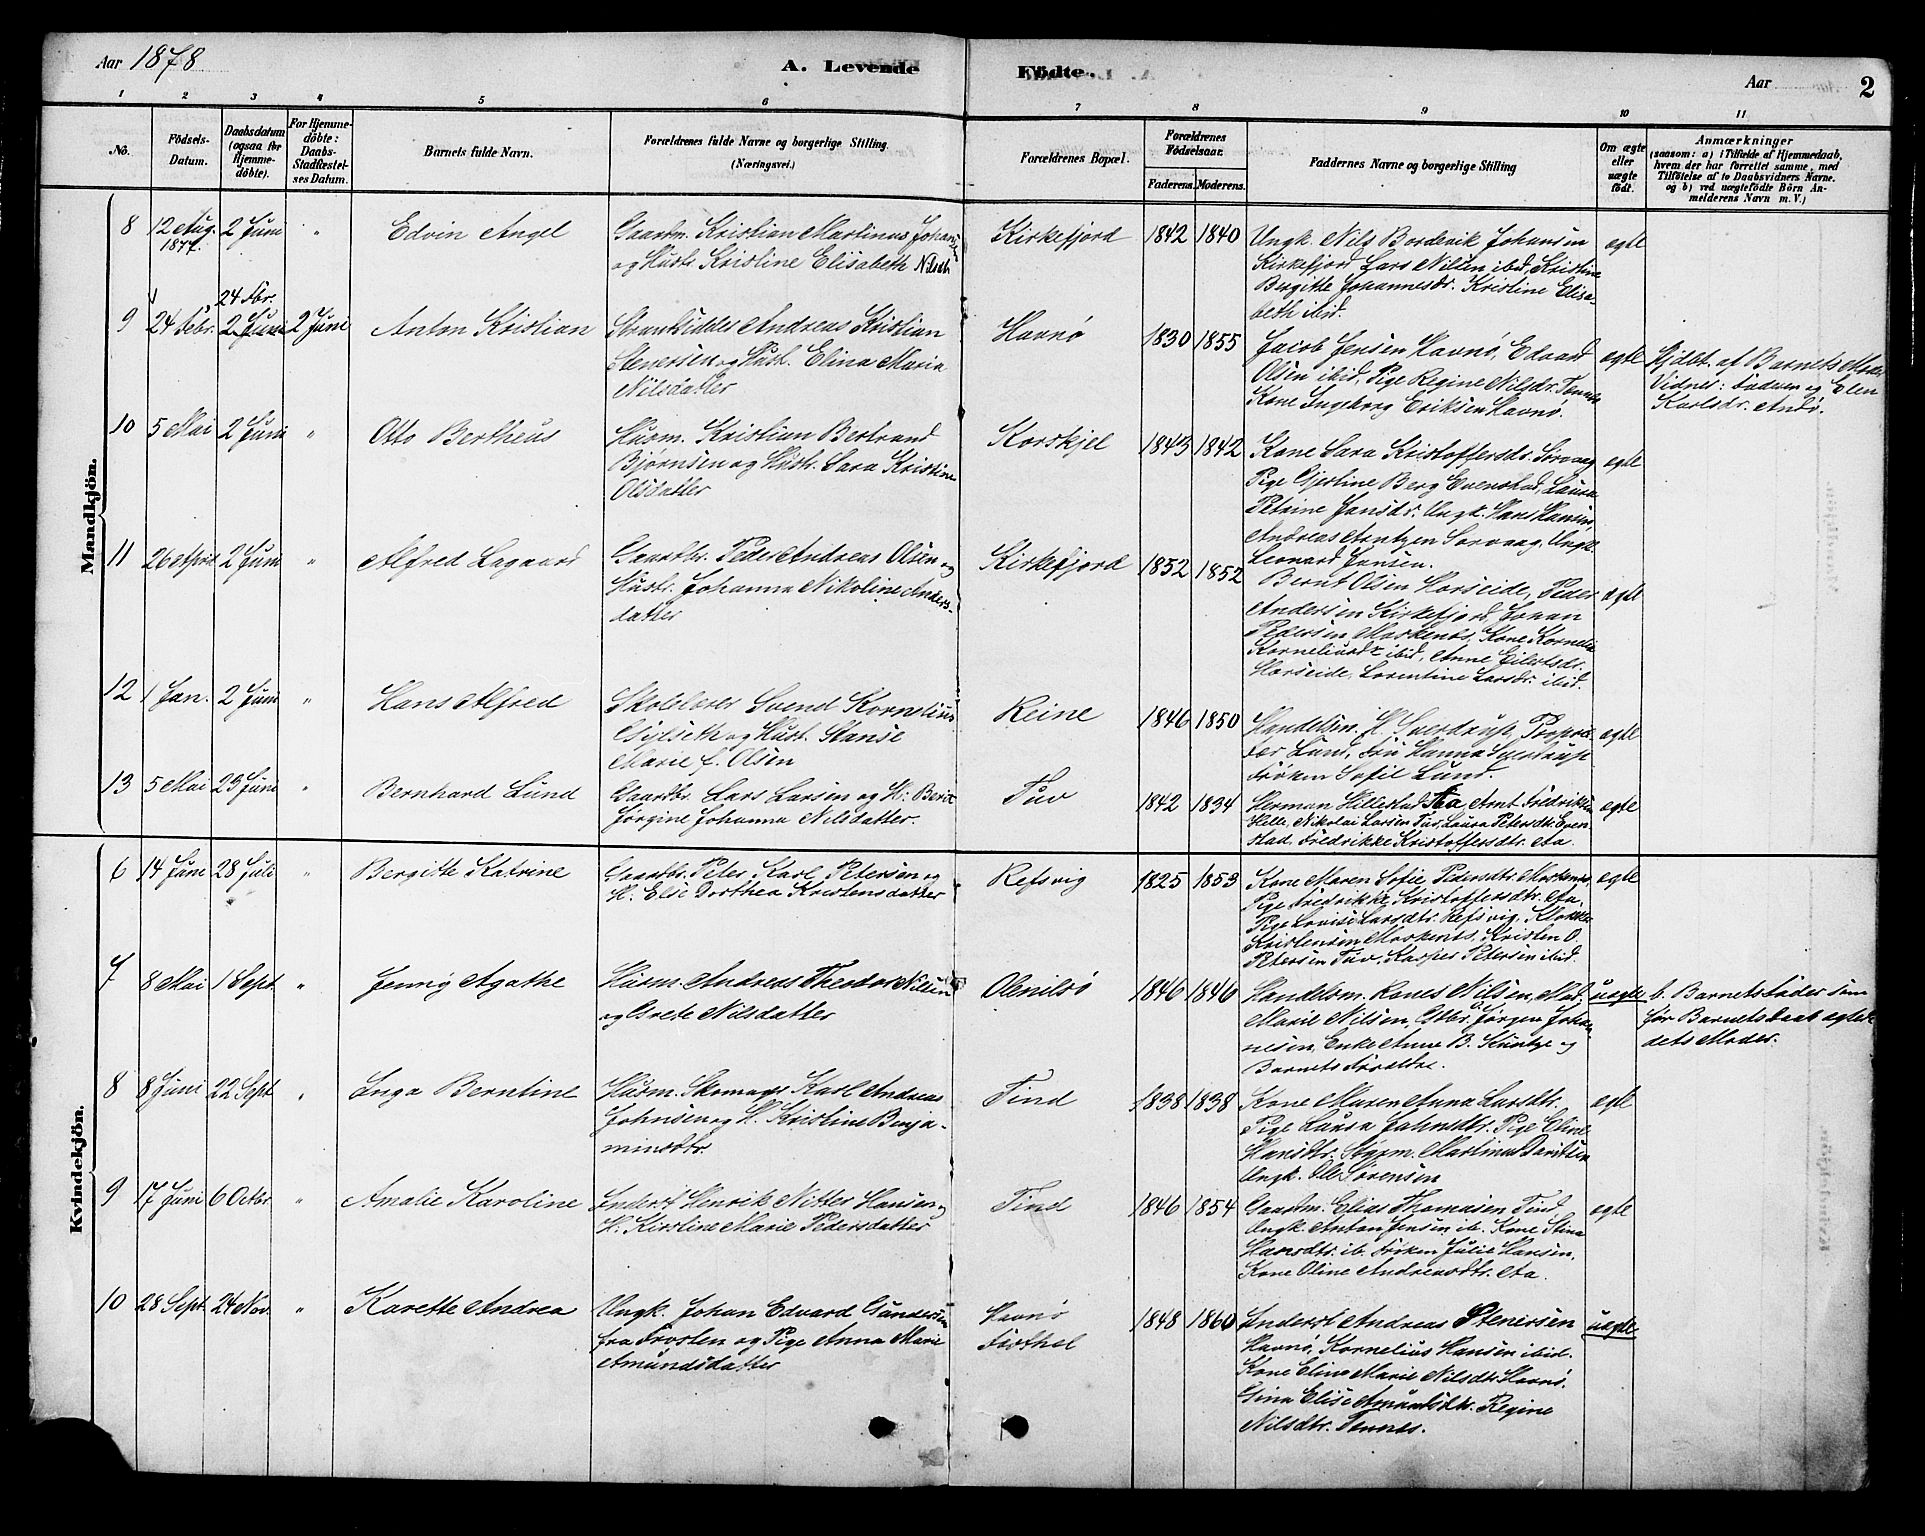 Aar 1878
A. Levende Födte.
Aar
2
1 2 3 4 5 6 7 8 9 10 11
No.
Födsels-Datum.
Daabsdatum (ogsaa for Hjemme-döbte).
For Hjemme-döbte: Daabs-Stadfæstel-ses Datum.
Barnets fulde Navn.
Forældrenes fulde Navne og borgerlige Stilling. (Næringsvei.)
Forældrenes Bopæl.
Forældrenes Födselsaar.
Faderens. Moderens.
Faddernes Navne og borgerlige Stilling
Om ægte eller uægte födt.
Anmærkninger
(saasom: a) i Tilfælde af Hjemmedaab, hvem der har forrettet samme, med Tilföielse af to Daabsvidners Navne. og b) ved uægtefödte Börn Anmelderens Navn m. V.)
Mandkjön.
8 12 Aug. 1877. 2 Juni " Edvin Angel
Gaardm. Kristian Martinus Johansen
og Hustr. Kristine Elisabeth Nilsdtr
Kirkefjord 1842 1840
Ungk. Nils Bordevik Johansen
Kirkefjord Lars Nilsen ibid, Kristine
Bergitte Johannesdr. Kristine Elisa-
beth ibid.
ægte
9 24 Febr. 24 Fbr. 2 Juni 2 Juni Anton Kristian
Strandsidder Andreas Kristian
Stenersen og Hust. Elina Maria
Nilsdatter
Havnø 1830 1855
Jacob Jensen Havnø, Edvard
Olsen ibid, Pige Regine Nilsdr. Tennes
Kone Ingeborg Eriksen Havnø.
ægte
Hjdbt. af Barnets Moder
Vidner: Faderen og Elen
Karlsdr. Andø.
10 5 Mai 2 Juni " Otto Bertheus
Husm. Kristian Bertrand
Bjørnsen og Hustr. Sara Kristine
Olsdatter
Korskjel 1843 1842
Kone Sara Kristoffersdr. Sørvaag
Pige Gjertine Berg Evenstad, Laura
Petrine Jansdr. Ungk. Hans Hansen,
Andreas Arntzen Sørvaag, Ungk.
Leonard Jensen.
ægte
11 26 April 2 Juni " Alfred Lagaard
Gaardbr. Peder Andreas Olsen og
Hustr. Johanna Nikoline Anders-
datter
Kirkefjord 1852 1852
Bernt Olsen Horseide, Peder
Andersen Kirkefjord, Johan
Pedersen Moskenes, Kone Kornelia
Korneliusdr ibid, Anne Eilertsdr.
Horseide, Lorentine Larsdr. ibid.
ægte
12 1 Jan. 2 Juni " Hans Alfred
Skolelærer Svend Kornelius
Gylseth og Hust. Hanse
Marie f. Olsen
Reine 1846 1850
Handelsm. H. Sverdrup, Proprie-
tær Lund, Fru Hanna Sverdrup
Frøken Sofie Lund.
ægte
13 5 Mai 23 Juni " Bernhard Lund
Gaardbr. Lars Larsen og H: Berit
Jørgine Johanna Nilsdatter.
Tuv 1842 1834
Herman Hillestad Aa, Arnt Fredriksen
Helle, Nikolai Larsen Tuv, Laura Petersdtr. Even-
stad, Fredrikke Kristoffersdtr. Aa
ægte
Kvindekjön.
6 14 Juni 28 Juli " Bergitte Katrine
Gaardbr. Peter Karl Petersen og
H. Elise Dorthea Kristensdatter
Refsvig 1825 1853
Kone Maren Sofie Pedersdtr. Moskenes,
Pige Fredrikke Kristoffersdtr. Aa.
Pige Lovise Larsdtr. Refsvig, Klokker
Kristensen Moskenes, Kristen O.
Petersen Tuv, Kasper Petersen ibid.
ægte
7 8 Mai 1 Sept. " Jenny Agathe
Husm. Andreas Theodor Nilsen
og Grete Nilsdatter
Olenilsø 1846 1846
Handelsm. Nilsen, Mad.
Marie Nilsen, Gbr. Jørgen Johan-
nesen, Enke Anne B. og
Barnets Forældre.
uægte
b. Barnets Fader som
før Barnets Daab ægtede
dets Moder.
8 8 Juni 22 Sept " Inga Berntine
Husm. Skomager Karl Andreas
Johnsen og H. Kristine Benja-
minsdtr.
Tind 1838 1838
Kone Maren Anna Larsdtr.
Pige Laura Johnsdtr. Pige Eline
Hansdtr. Martinus Davidsen
Ungk. Ole Sørensen
ægte
9 17 Juni 6 Octbr " Amalie Karoline
Inderst Henrik Nitter Hansen og
H. Kirstine Marie Pedersdatter
Tind 1846 1854
Gaardm. Elias Thomasen Tind
Ungk. Anton Jensen ib. Kone Stina
Hansdtr. ib. Frøken Julie Hansen.
Kone Oline Andreasdtr. Aa.
ægte
10 28 Sept. 24 Nov. " Karette Andrea
Ungk. Johan Edvard Gundersen
fra Frosten og Pige Anna Marie
Amundsdatter
Havnø
1848 1860
Inderst Andreas Stenersen
Havnø, Kornelius Hansen ibid.
Kone Eline Marie Nilsdtr. Havnø.
Gina Elise Amundsdtr. Regine
Nilsdtr. Tennes.
uægte